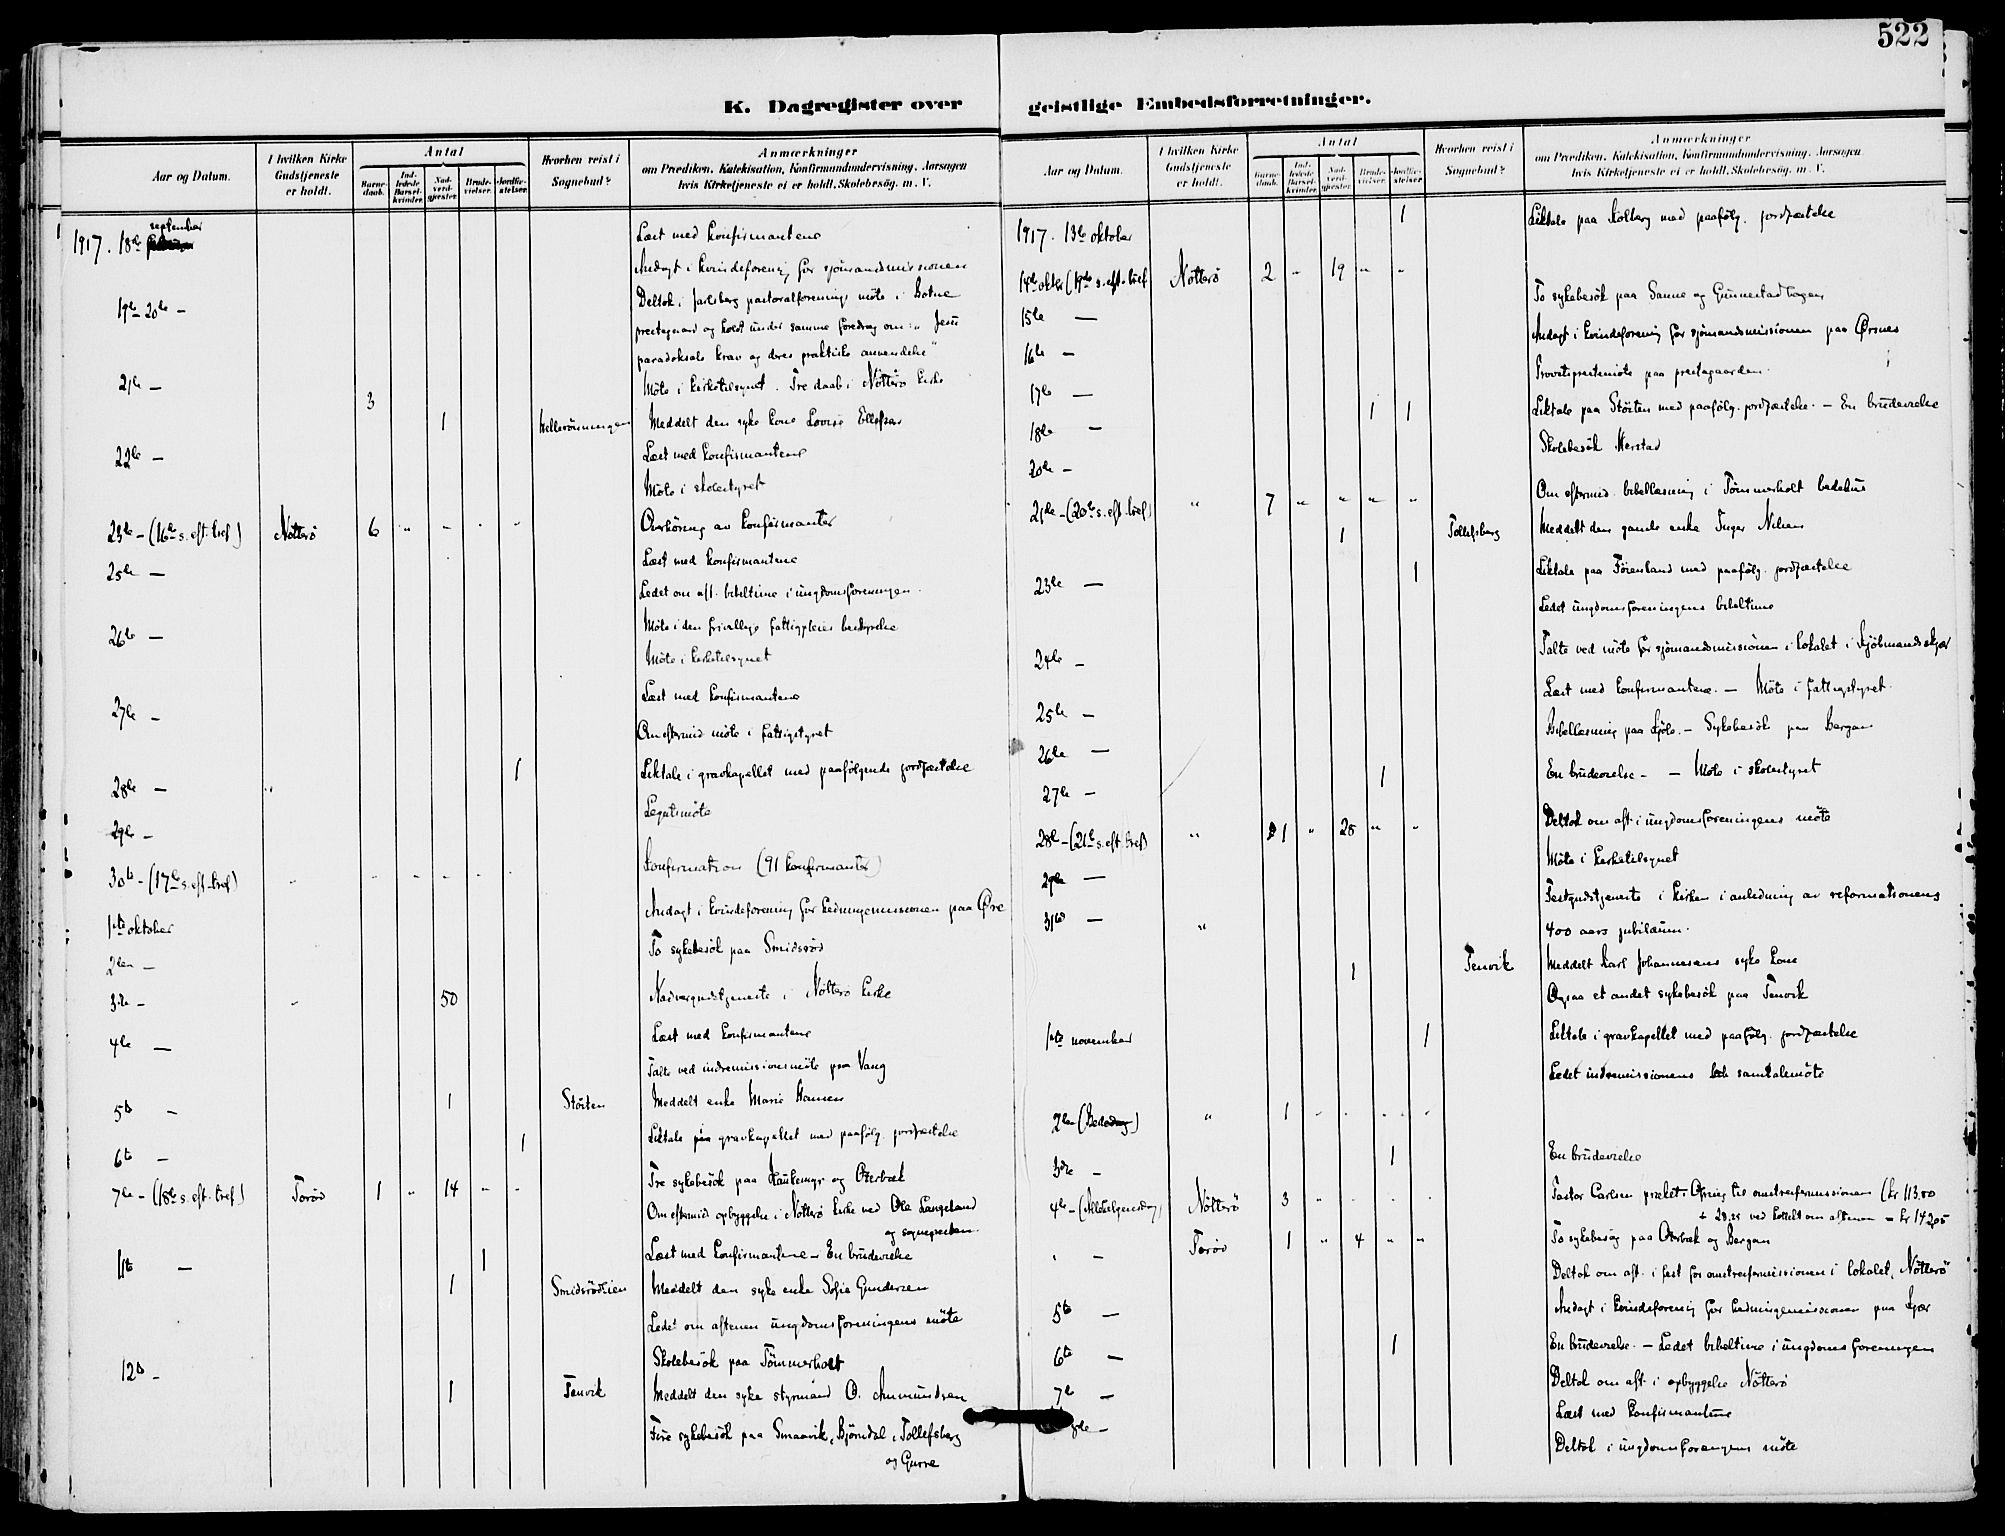 522
K. Dagregister over
geistlige Embedsforretninger.
Aar og Datum.
I hvilken Kirke Gudstjeneste er holdt.
Antal
Barne-daab.
Ind-ledede Barsel-kvinder.
Nad-verd-gjester.
Brude-vielser.
Jordfæ-stelser.
Hvorhen reist i Sognebud?
Anmærkninger
om Prædiken, Katekisation, Konfirmandundervisning, Aarsagen
hvis Kirketjeneste ei er holdt, Skolebesøg. m. V.
1917. 18de september Læst med konfirmantene
Andagt i kvindeforening for sjömandsmissionen
19de 20de — Deltok i Jarlsberg pastoralforenings möte i Botne
prestegaard og holdt under samme foredrag om: "Jesu
paradoksale krav og deres praktiske anvendelse"
21de — Möte i kirketilsynet. Tre daab i Nötterö kirke
3
1 Hellerönningen Meddelt den syke kone Lovise Ellefsen
22de — Læst med konfirmantene
Möte i skolestyret
23de — (16de s. eft. tref) Nötterö 6 " - " " Overhöring av konfirmanter
25de — Læst med konfirmantene
Ledet om aft. bibeltime i ungdomsforeningen.
26de — Möte i den frivillige fattigpleies bestyrelse
Möte i kirketilsynet
27de — Læst med konfirmantene
Om eftermid möte i fattigstyret
28de — " 1 Liktale i gravkapellet med paafölgende jordfæstelse
29de — Legatsmöte
30te — (17de s. eft. tref) " - - - - - Konfirmation (91 konfirmanter)
1ste oktober Andagt i kvindeforening for hedningemissionen paa Öre
2den — To sykebesök paa Smidsröd
3die — " 50 Nadvergudstjeneste i Nötterö kirke
4de — Læst med konfirmantene
Talte ved indremissionsmöte paa Vang
5te — 1 Stöiten Meddelt enke Marie Hansen
6te — 1 Liktale paa gravkapellet med paafölg. jordfæstelse
7de — (18de s. eft. tref) Toröd 1 " 14 " " Tre sykebesök paa og Oterbæk
Om eftermid opbyggelse i Nötterö kirke ved Ole Langeland
og sognepresten.
11te — 1 Læst med konfirmantene — En brudevielse
1 Smidsrödveien Meddelt den syke enke Sofie Gundersen
Ledet om aftenen ungdomsforeningens möte
12te — Skolebesök paa Tömmerholt
1 Tenvik Meddelt den syke styrmand O. Anmundsen
Fire sykebesök paa Smaavik, Björndal, Tollefsberg
og Gurre
Aar og Datum.
I hvilken Kirke Gudstjeneste er holdt.
Antal
Barne-daab.
Ind-ledede Barsel-kvinder.
Nad-verd-gjester.
Brude-vielser.
Jordfæ-stelser.
Hvorhen reist i Sognebud?
Anmærkninger
om Prædiken, Katekisation, Konfirmandundervisning, Aarsagen
hvis Kirketjeneste ei er holdt, Skolebesøg. m. V.
1917. 13de oktober 1 Liktale paa Kolberg med paafölg. jordfæstelse
14de oktbr (19de s. eft. tref Nötterö 2 " 19 " "
15de — To sykebesök paa Sanne og Gunnestadhagen
16de — Andagt i kvindeforening for sjömandsmissionen paa Örsnes
17de — Provstiprestemöte paa prestegaarden.
18de — 1 1 Liktale paa Stöiten med paafölg. jordfæstelse. — En brudevielse
20de — Skolebesök Herstad
21de — (20de s. eft. tref) " 7 " " " " Om eftermid. bibellæsning i Tömmerholt bedehus
1 Tollefsberg Meddelt den gamle enke Inger Nilsen
23de — 1 Liktale paa Föienland med paafölg. jordfæstelse
Ledet ungdomsforeningens bibeltime
24de — Talte ved möte for sjömandsmissionen i lokalet i Kjöbmandskjær
25de — Læst med konfirmantene. — Möte i fattigstyret.
26de — Bibellæsning paa — Sykebesök paa Bergan
27de — 1 En brudevielse — — Möte i skolestyret
28de — (21de s. eft. tref) " 1 " 28 " " Deltok om aft. i ungdomsforeningens möte
29de — Möte i kirketilsynet
31te — " Festgudstjeneste i kirken i anledning av reformationens
400 aars jubilæum.
1 Tenvik Meddelt Karl Johannesens syke kone
Ogsaa et andet sykebesök paa Tenvik
1ste november 1 Liktale i gravkapellet med paafölg. jordfæstelse
Ledet indremissionens samtalemöte
2den — (Bededag) " 1 - - - -
3die — 1 En brudevielse
4de — (Allehelgensdag) Nötterö 3 " " " " Pastor Carlsen præket. Ofring til omstreifermissionen (kr 113,80
+ 28,25 ved lokalet om aftenen = kr 142,05
" — Toröd 1 " 4 " " To sykebesög paa Oterbæk og Bergan
Deltok om aft. i fest for omstreifermissionen i lokalet, Nötterö
5te — Andagt i kvindeforening for hedningemissionen paa Kjær
6te — 1 En brudevielse. — Ledet bibeltime i ungdomsforeningen
7de — Deltok om aft. i opbyggelse Nötterö
8de — Læst med konfirmantene
Deltok i ungdomsforeningens möte